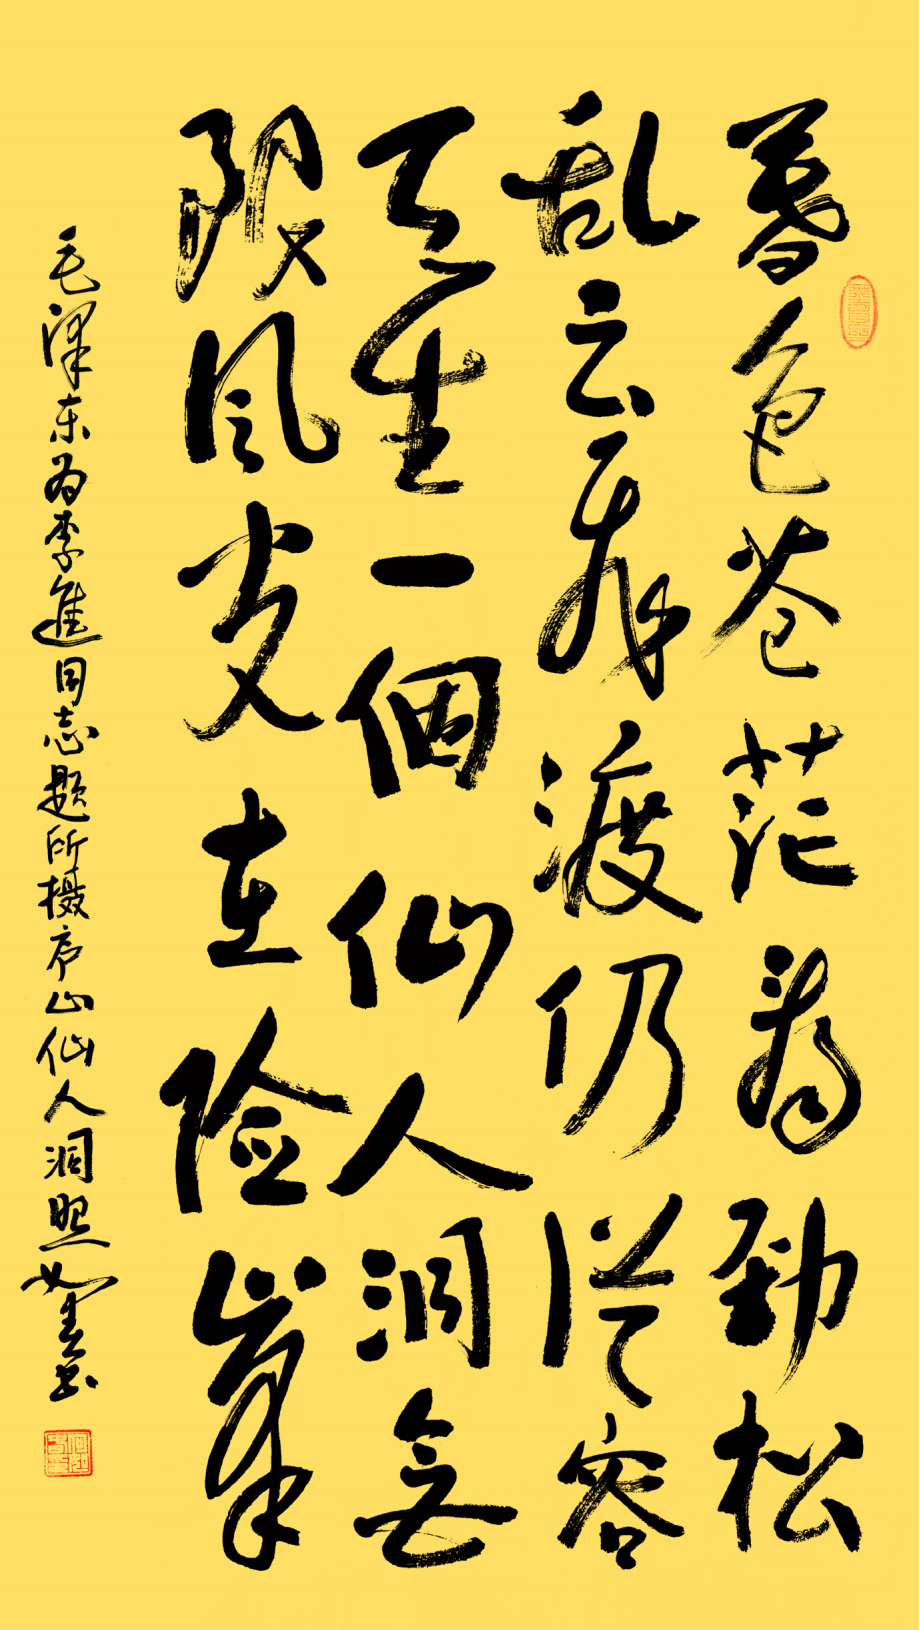 暮色苍茫看劲松
乱云飞渡仍从容
天生一個仙人洞无
限风光在险峰
毛泽东为李進同志题所摄庐山仙人洞照